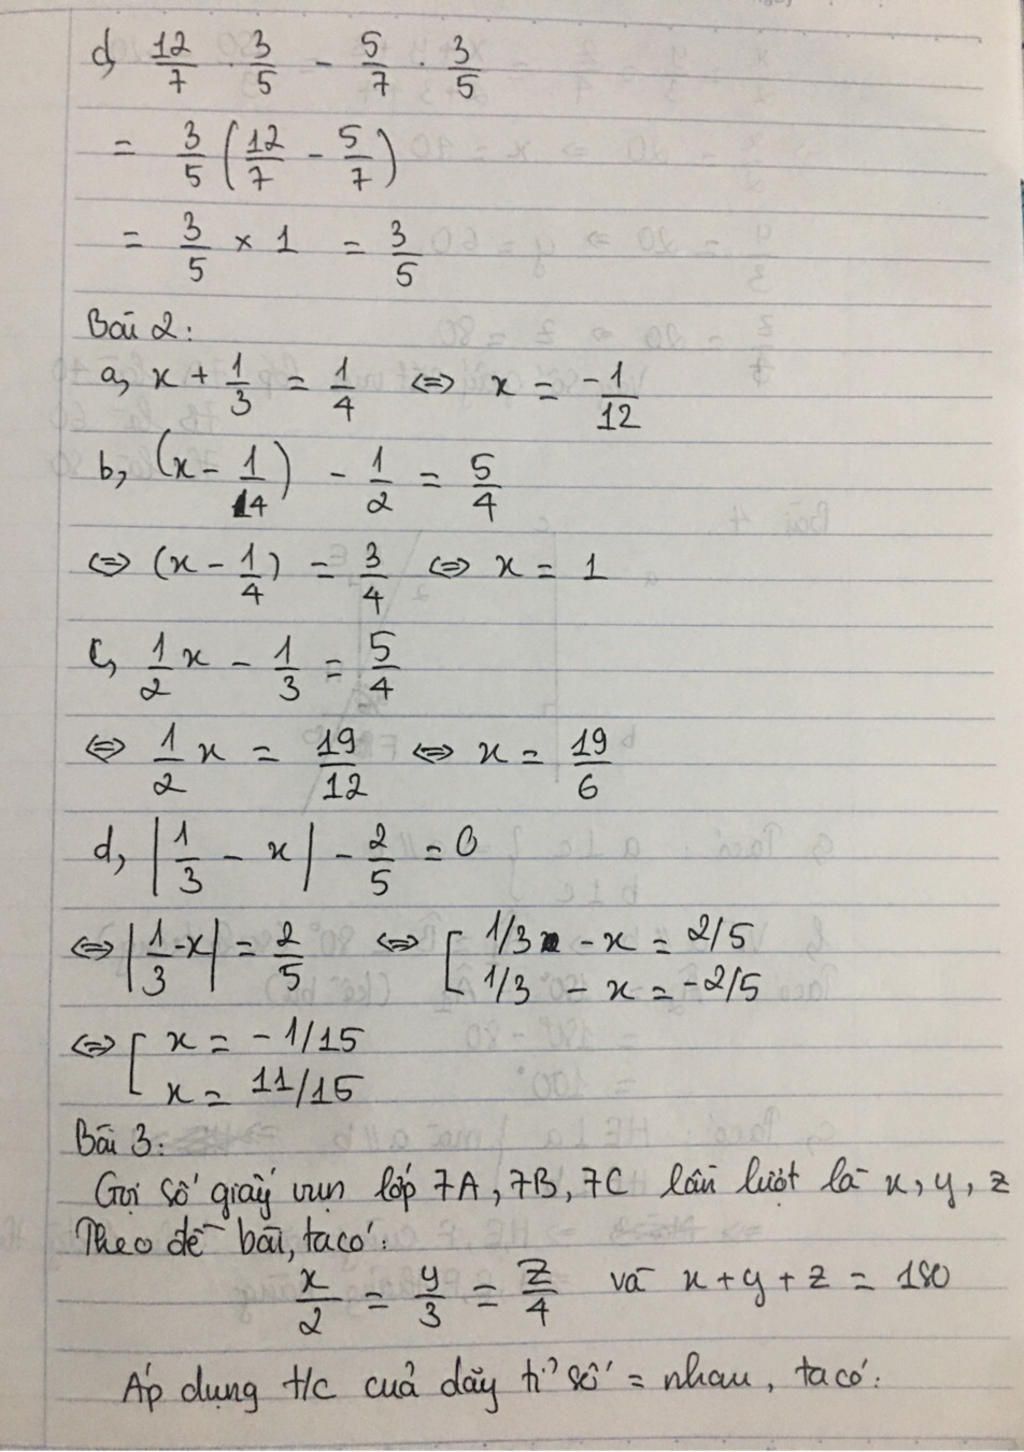 d, 12/7 . 3/5 - 5/7 . 3/5
= 3/5 (12/7 - 5/7)
= 3/5 × 1 = 3/5
Bài 2:
a, x + 1/3 = 1/4 <=> x = -1/12
b, (x - 1/4) - 1/2 = 5/4
<=> (x - 1/4) = 3/4 <=> x = 1
c, 1/2 x - 1/3 = 5/4
<=> 1/2 x = 19/12 <=> x = 19/6
d, |1/3 - x| - 2/5 = 0
<=> |1/3 - x| = 2/5 <=> [ 1/3 - x = 2/5
1/3 - x = -2/5
<=> [ x = -1/15
x = 11/15
Bài 3:
Gọi số giấy vụn lớp 7A, 7B, 7C lần lượt là x, y, z
Theo đề bài, ta có:
x/2 = y/3 = z/4 và x + y + z = 180
Áp dụng t/c của dãy tỉ số = nhau, ta có: